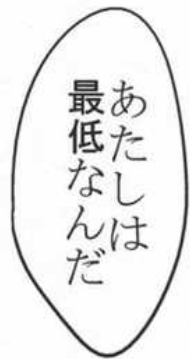 あたしは
最低なんだ